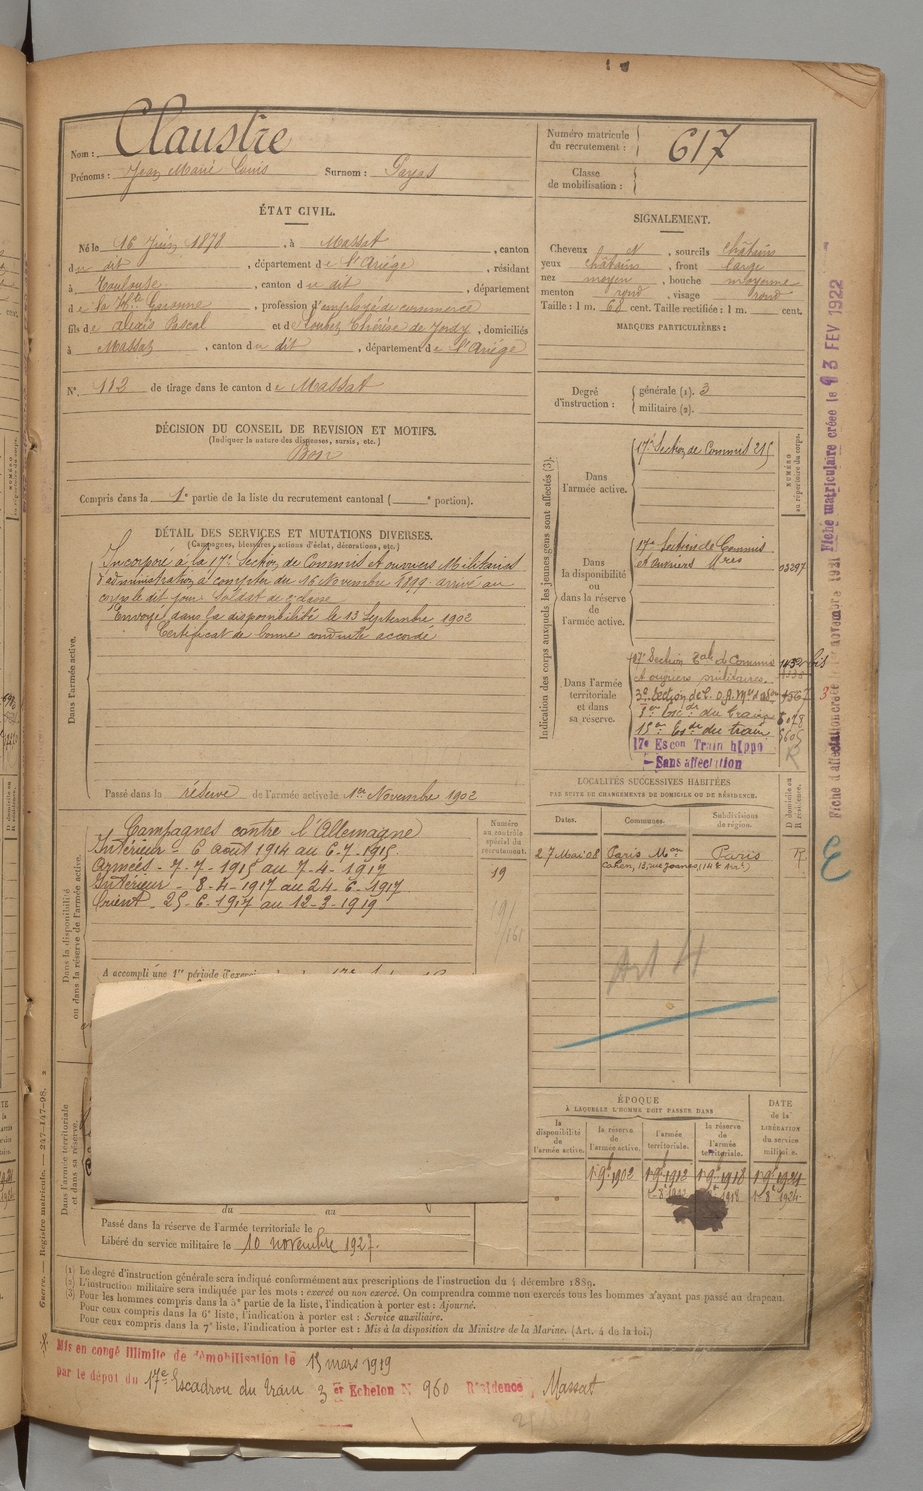 Nom : Claustre
Prénoms : Jean Marie Louis Surnom :
Numéro matricule du recrutement : 617
Classe de mobilisation :
ÉTAT CIVIL.
Né le 16 Juin 1878, à Massat, canton
du dit, département de l'Ariège, résidant
à Toulouse, canton du dit, département
de la Hte Garonne, profession d'employé de commerce
fils de Pascal et de Thérèse de Jordy, domiciliés
à Massat, canton du dit, département de l'Ariège
N° 112 de tirage dans le canton de Massat
DÉCISION DU CONSEIL DE REVISION ET MOTIFS.
(Indiquer la nature des dispenses, sursis, etc.)
Bon
Compris dans la 1e partie de la liste du recrutement cantonal ( e portion).
SIGNALEMENT.
Cheveux N, sourcils châtains
yeux châtains, front large
nez moyen, bouche moyenne
menton rond, visage rond
Taille : 1 m. 68 cent. Taille rectifiée : 1 m. cent.
MARQUES PARTICULIÈRES :
Degré d'instruction :
générale (1). 3
militaire (2).
Indication des corps auxquels les jeunes gens sont affectés (3).
NUMÉRO au répertoire du corps.
Dans l'armée active.
17e Section de Commis 215
Dans la disponibilité ou dans la réserve de l'armée active.
17e Section de Commis
et ouvriers Mres 03297
Dans l'armée territoriale et dans sa réserve.
17e Section Tale de Commis 1432 bis
et ouvriers militaires.
15e Esc. du train
17e Escon Train hippo
Sans affectation
R
DÉTAIL DES SERVICES ET MUTATIONS DIVERSES.
(Campagnes, blessures, actions d'éclat, décorations, etc.)
Dans l'armée active.
Incorporé à la 17e Section de Commis et ouvriers Militaires
d'administration à compter du 16 Novembre 1899. arrivé au
corps le dit jour. Soldat de 2e classe
Envoyé dans la disponibilité le 13 Septembre 1902
Certificat de bonne conduite accordé
Passé dans la réserve de l'armée active le 1er Novembre 1902
Dans la disponibilité ou dans la réserve de l'armée active.
Numéro au contrôle spécial du recrutement.
19
Campagnes contre l'Allemagne
Intérieur - 6 août 1914 au 6-7-1915.
Armées - 7-7-1915 au 7-4-1917
Intérieur - 8-4-1917 au 24-6-1917
Orient - 25-6-1917 au 12-3-1919
A accompli une 1re période d'exercices
LOCALITÉS SUCCESSIVES HABITÉES
PAR SUITE DE CHANGEMENTS DE DOMICILE OU DE RÉSIDENCE.
Dates. Communes. Subdivisions de région. D domicile ou R résidence.
27 Mai 08 Paris Mon Paris R
Cahen, 13, rue Joanes (14e arrt)
Art 4
ÉPOQUE
À LAQUELLE L'HOMME DOIT PASSER DANS
la disponibilité de l'armée active.
la réserve de l'armée active.
l'armée territoriale.
la réserve de l'armée territoriale.
DATE de la LIBÉRATION du service militaire.
1e 9bre 1902 1e 9bre 1912 1e 9bre 1918 1e 9bre 1924
Dans l'armée territoriale et dans sa réserve.
du au
Passé dans la réserve de l'armée territoriale le
Libéré du service militaire le 10 novembre 1927.
(1) Le degré d'instruction générale sera indiqué conformément aux prescriptions de l'instruction du 4 décembre 1889.
(2) L'instruction militaire sera indiquée par les mots : exercé ou non exercé. On comprendra comme non exercés tous les hommes n'ayant pas passé au drapeau.
(3) Pour les hommes compris dans la 5e partie de la liste, l'indication à porter est : Ajourné.
Pour ceux compris dans la 6e liste, l'indication à porter est : Service auxiliaire.
Pour ceux compris dans la 7e liste, l'indication à porter est : Mis à la disposition du Ministre de la Marine. (Art. 4 de la loi.)
Mis en congé illimité de démobilisation le 13 mars 1919
par le dépôt du 17e Escadron du train 3 er Echelon N° 960 Résidence, Massat
Guerre. — Registre matricule. — 247-147-98.
Fiche matriculaire créée le 3 FEV 1922